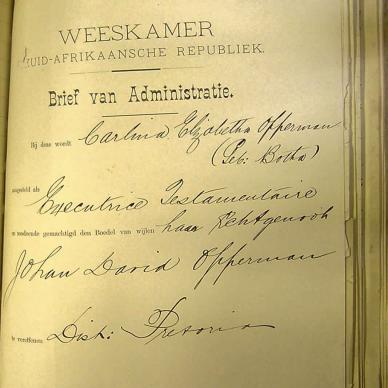 WEESKAMER
ZUID-AFRIKAANSCHE REPUBLIEK.
Brief van Administratie.
Bij deze wordt Carlina Elizabetha Opperman
(Geb: Botha)
aangesteld als
Executrice Testamentaire
en zoodoende gemachtigd den Boedel van wijlen haar Echtgenoot
Johan David Opperman
te vereffenen Dist: Pretoria